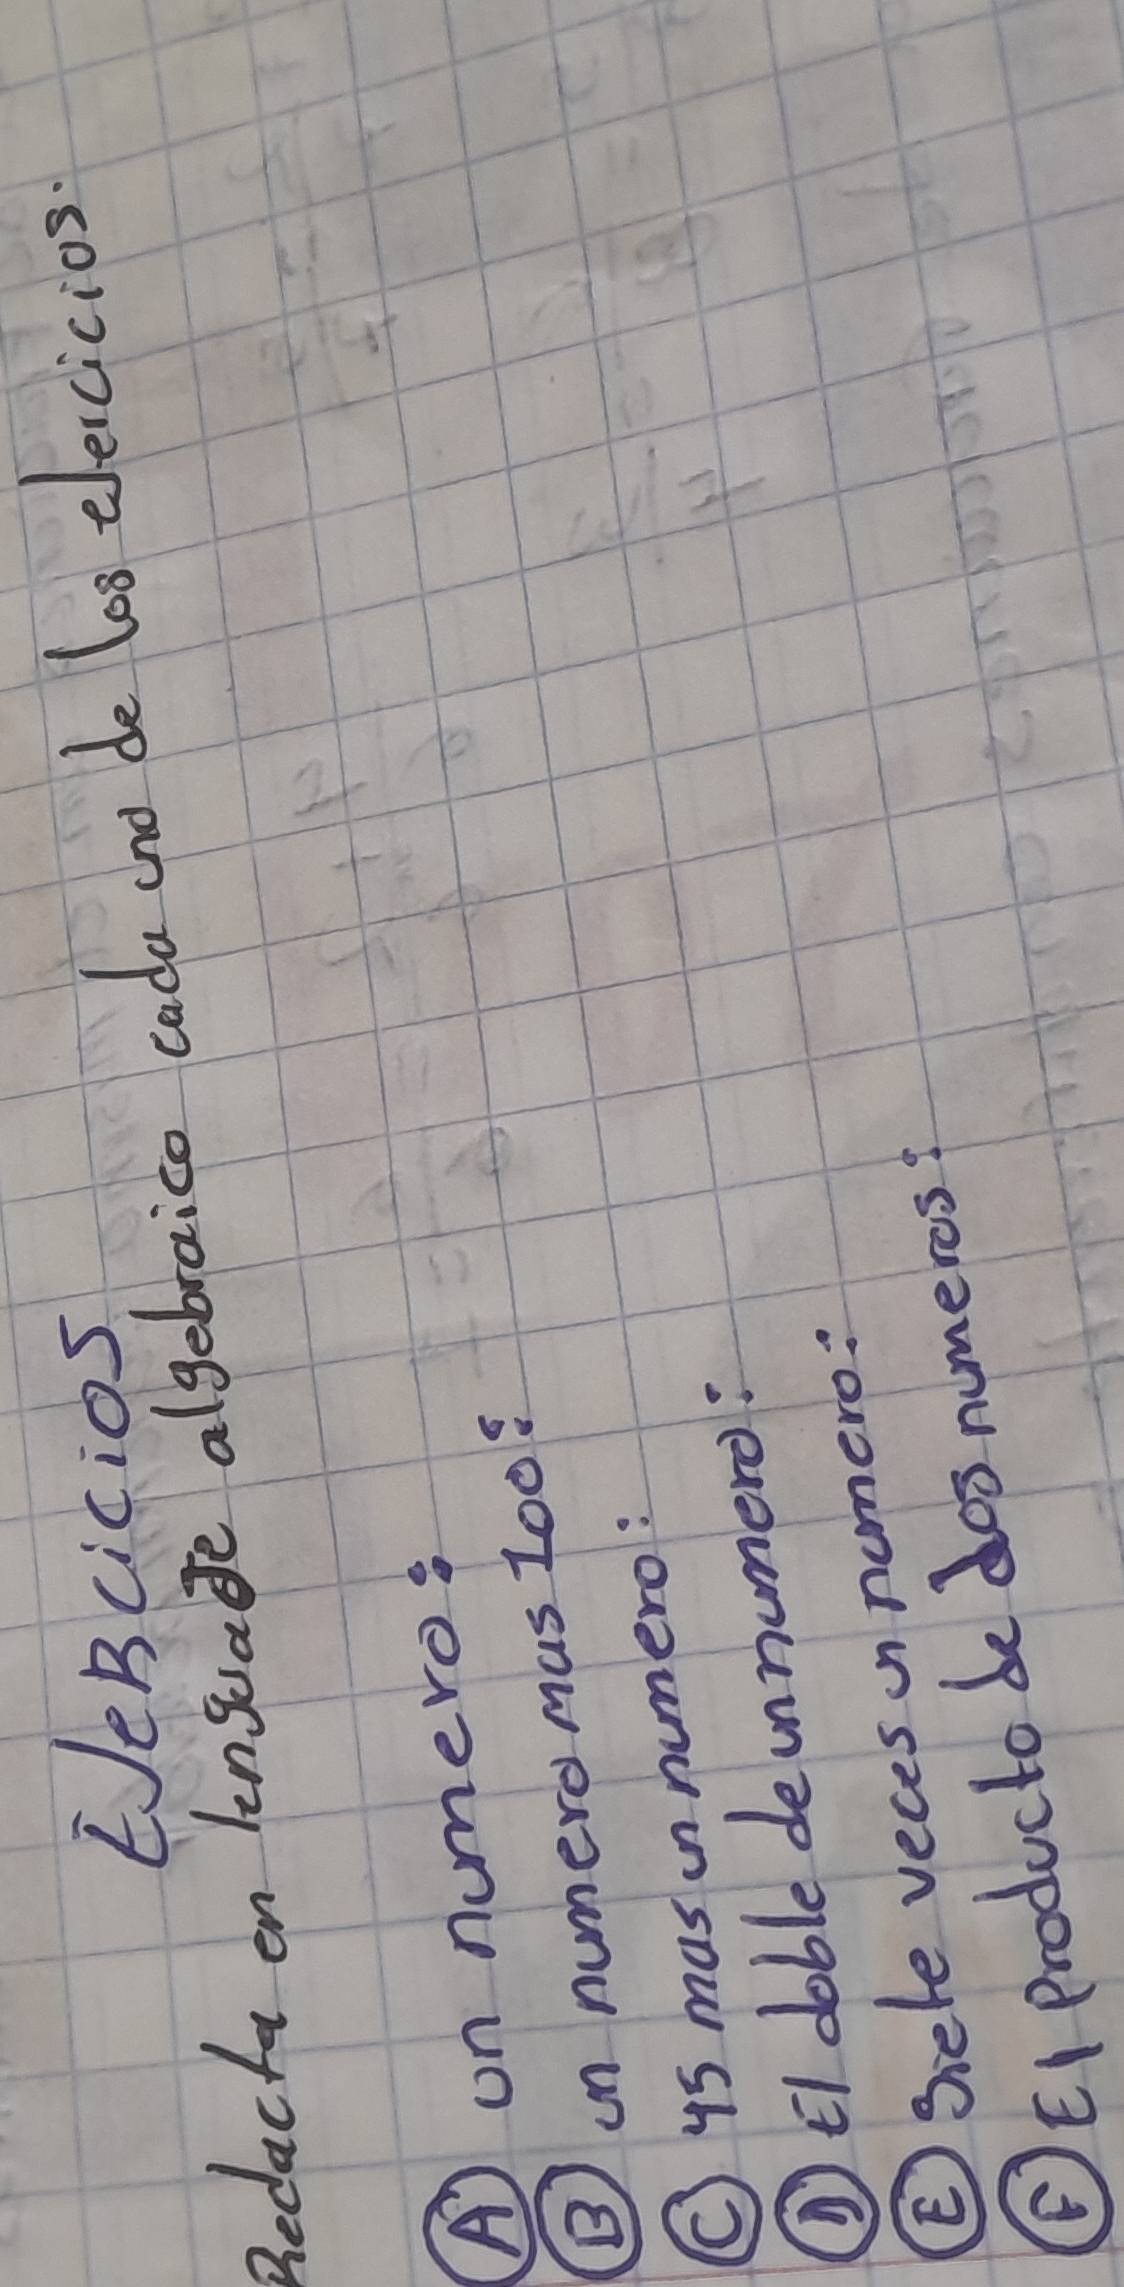 EJeRCiciOS
Redacta en lenguaje algebraico cada uno de los ejercicios.
A un numero:
B un numero mas 100:
C 45 mas un numero:
D El doble de un numero:
E Siete veces un numero:
F El producto de dos numeros: